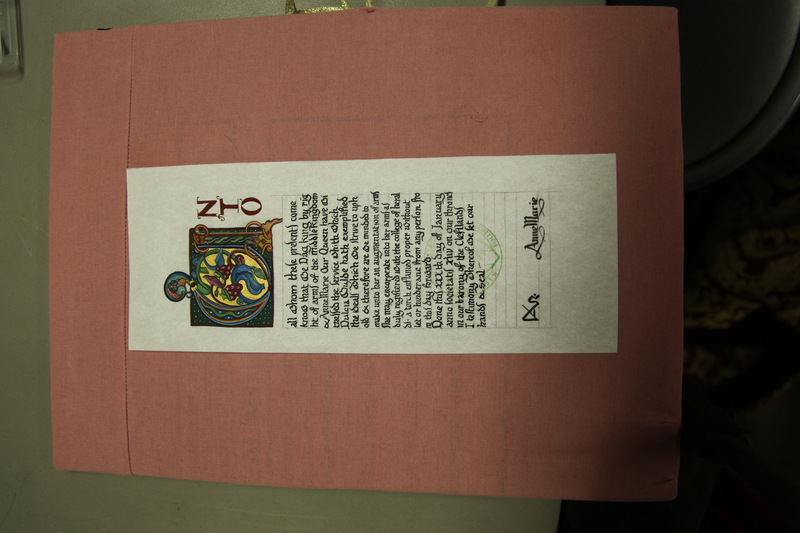 UNTO
all whom these presents come
know that We Dag, king by rig
ht of arms of the Middle Kingdom
& AnneMarie Our Queen have wi
tnessed the service with which
Dulcia hath exemplified
the ideals which We strive to uph
old & therefore are We minded to
make unto her an augmentation of arms
She may encorporate into her armes
duly registered with the college of heral
ds a torch enflamed proper without
let or hinderance from any person, fro
m this day forward.
Done this XXX th day of January
anno societatis on our throne
in our barony of the Cleftlands
I testimony whereof we set our
hands & seal
Dag R
AnneMarie